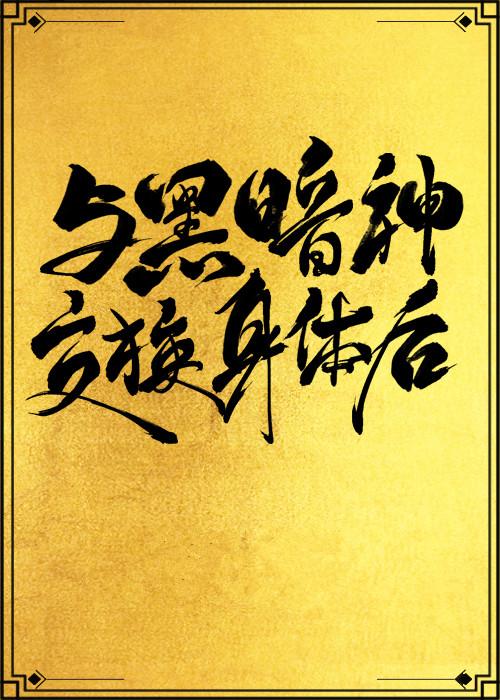 与黑暗神
交换身体后